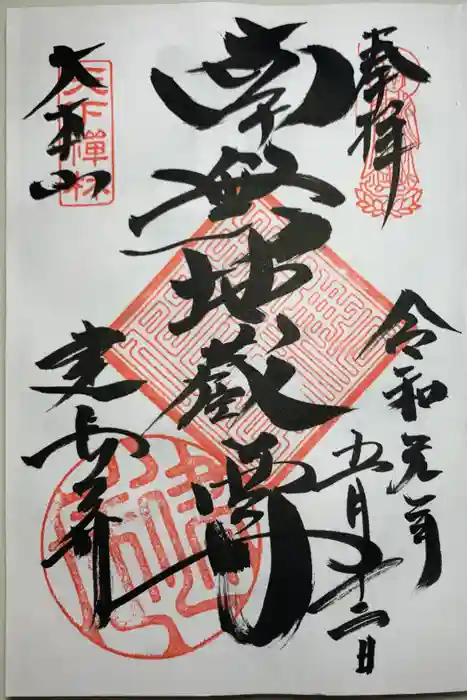 奉拝
令和元年
五月十二日
南無地蔵尊
大本山
建長寺
天下禅林